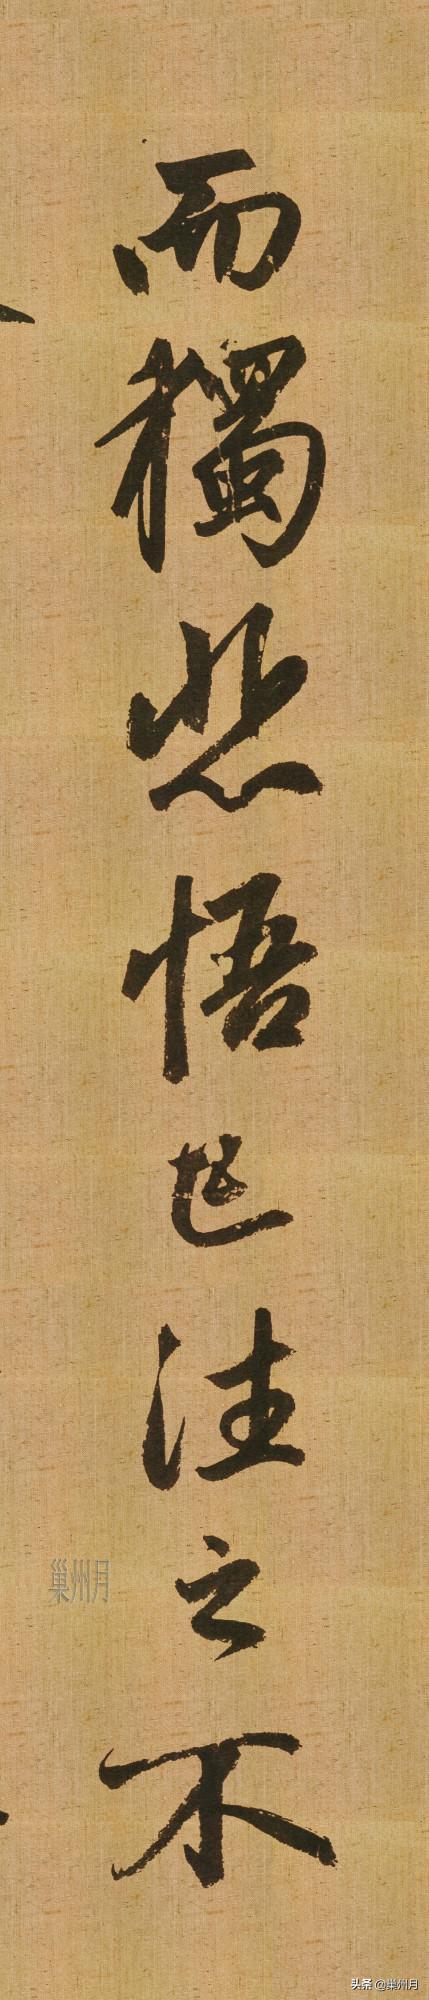 而獨悲悟已往之不
巢州月
头条 @巢州月